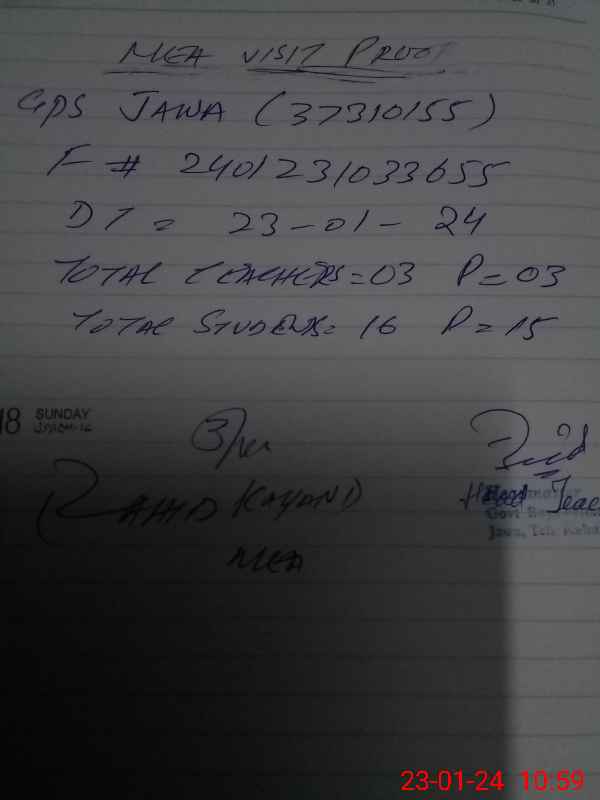 MEA VISIT PROOF
GPS JAWA (37310155)
F # 2401231033655
DT = 23-01-24
TOTAL TEACHERS=03 P=03
TOTAL STUDENTS= 16 P=15
18 SUNDAY
KAYANI
MEA
Head Teac
Govt
Jawa, Teh
23-01-24 10:59